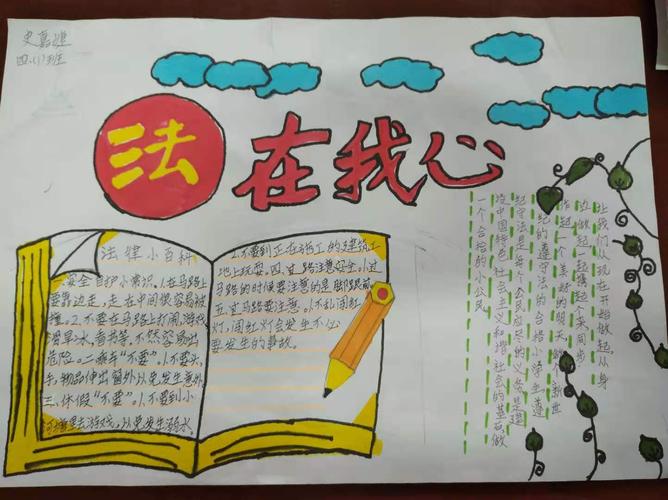 史嘉
四、(1)班
法在我心
法律小百科
一、安全自护小常识。1.在马路上
要靠边走,走在中间很容易被
撞。2.不要在马路上打闹,游戏
滑旱冰,看书等,不然容易出
危险。二乘车"不要"。1.不要头、
手,物品伸出窗外以免发生意外
三、休假"不要"。1.不要到小
河塘里去游戏,以免发生溺水。
2.不要到正在施工的建筑工
地上玩耍。四.过路注意安全。1.过
马路的时候要注意的是
五.过马路要注意。1.不乱闯红
灯,闯红灯会发生不必
要发生的事故。
让我们从现在开始做起,从身
边做起一起携起个来同步
作起一个美好的明天做个新世
纪的遵守法的合格小学生遵
纪守法是每个公民应尽的义务是建
设中国特色社会主义和谐社会的基石,做
一个合格的小公民